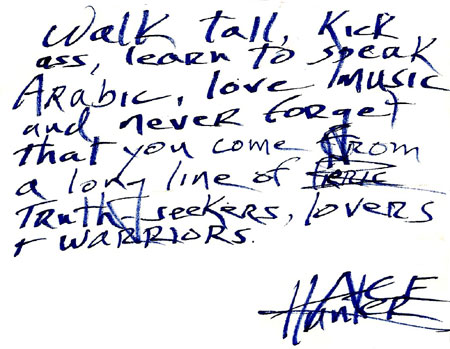 Walk tall, Kick
ass, learn to speak
Arabic, love music
and never forget
that you come from
a long line of
Truth seekers, lovers
+ warriors.
Hunter